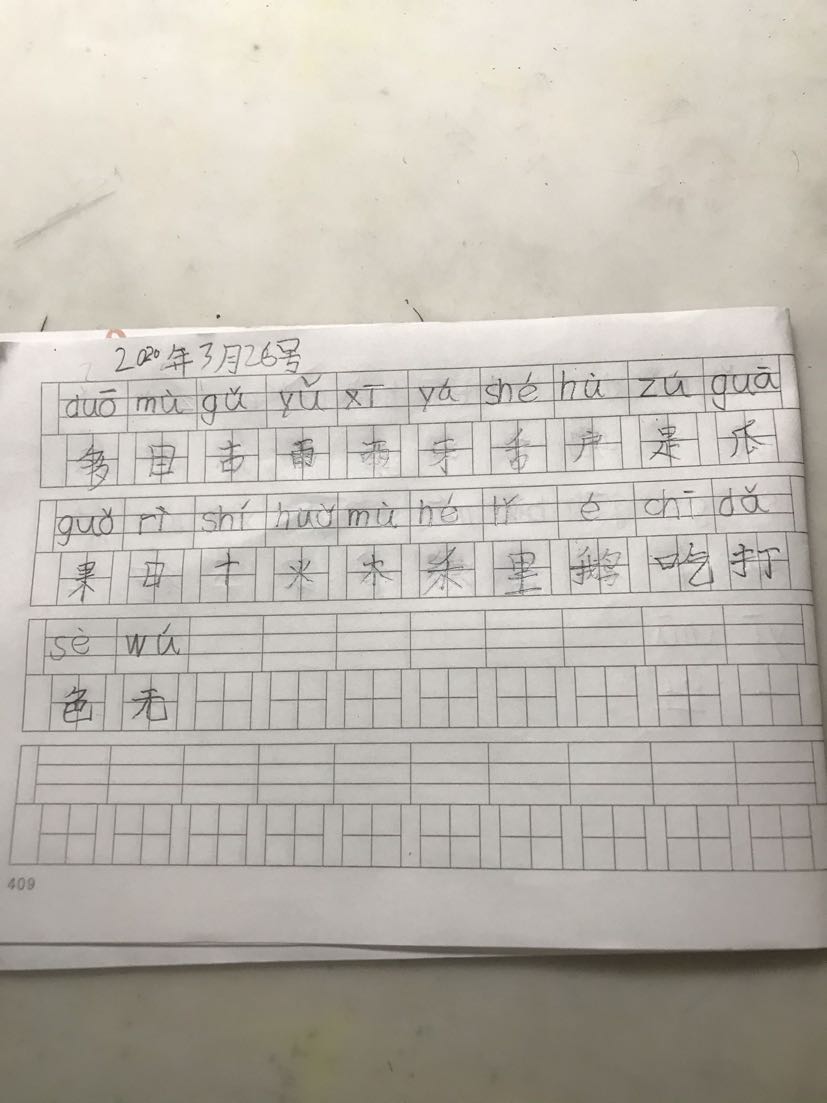 2020年3月26号
duō mù gǔ yǔ xī yá shé hù zú guā
多 目 古 雨 西 牙 舌 户 是 爪
guǒ rì shí huǒ mù hé lǐ é chī dǎ
果 日 十 火 木 禾 里 鹅 吃 打
sè wú
色 无
409